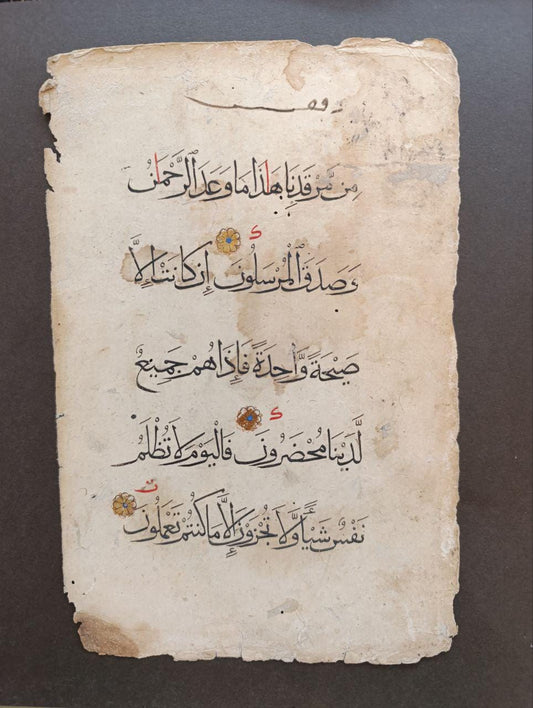 وقف
مِن مَّرْقَدِنَا هٰذَا مَا وَعَدَ الرَّحْمٰنُ
وَصَدَقَ الْمُرْسَلُونَ إِن كَانَتْ إِلَّا
صَيْحَةً وَّاحِدَةً فَإِذَا هُمْ جَمِيعٌ
لَّدَيْنَا مُحْضَرُونَ فَالْيَوْمَ لَا تُظْلَمُ
نَفْسٌ شَيْـًٔا وَّلَا تُجْزَوْنَ إِلَّا مَا كُنتُمْ تَعْمَلُونَ